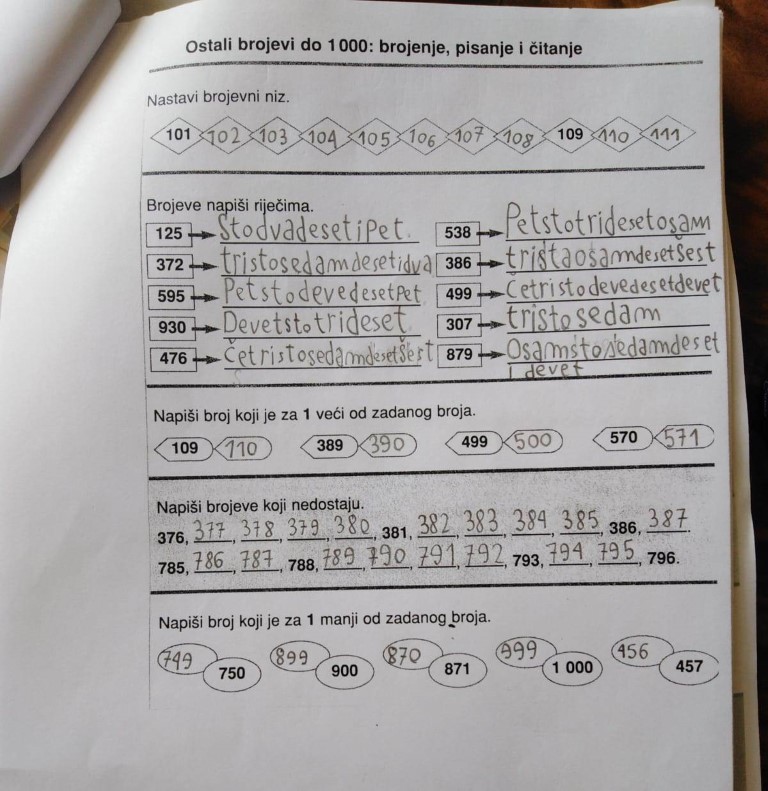 Ostali brojevi do 1 000: brojenje, pisanje i čitanje
Nastavi brojevni niz.
101 102 103 104 105 106 107 108 109 110 111
Brojeve napiši riječima.
125 Stodvadesetipet 538 Petstotridesetosam
372 tristosedamdesetidva 386 tristaosamdesetšest
595 Petstodevedesetpet 499 Četristodevedesetdevet
930 Devetstotrideset 307 tristosedam
476 Četristosedamdesetšest 879 Osamstosedamdeset
i devet
Napiši broj koji je za 1 veći od zadanog broja.
109 110 389 390 499 500 570 571
Napiši brojeve koji nedostaju.
376, 377, 378, 379, 380, 381, 382, 383, 384, 385, 386, 387.
785, 786, 787, 788, 789, 790, 791, 792, 793, 794, 795, 796.
Napiši broj koji je za 1 manji od zadanog broja.
749 899 870 999 456
750 900 871 1 000 457